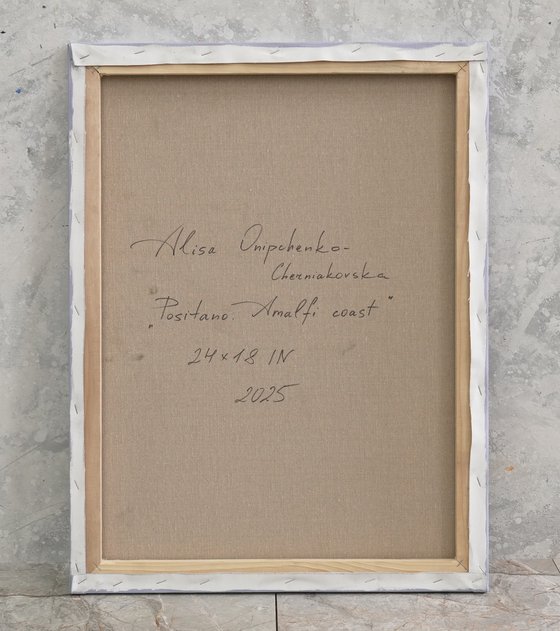 Alisa Onipchenko-
Cherniakovska
„Positano. Amalfi coast"
24×18 IN
2025